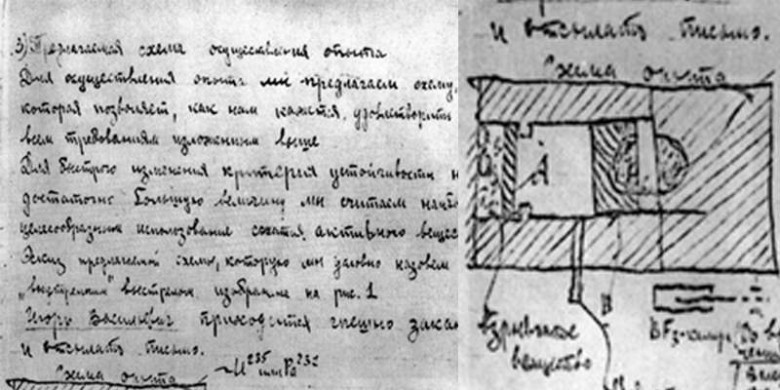 3) Предлагаемая схема осуществления опыта
Для осуществления опыта мы предлагаем схему,
которая позволяет, как нам кажется, удовлетворить
всем требованиям изложенным выше
Для быстрого изменения критерия устойчивости н
достаточно большую величину мы считаем наибо
целесообразным использование сжатия активного вещес
Эскиз предлагаемой схемы, которую мы условно назовем
„внутренним" выстрелом, изобразим на рис. 1
Игорь Васильевич приходится спешно закан
и отсылать письмо.
Схема опыта
и отсылать письмо.
Схема опыта
А
В
взрывчатое
вещество
BF₃-камера